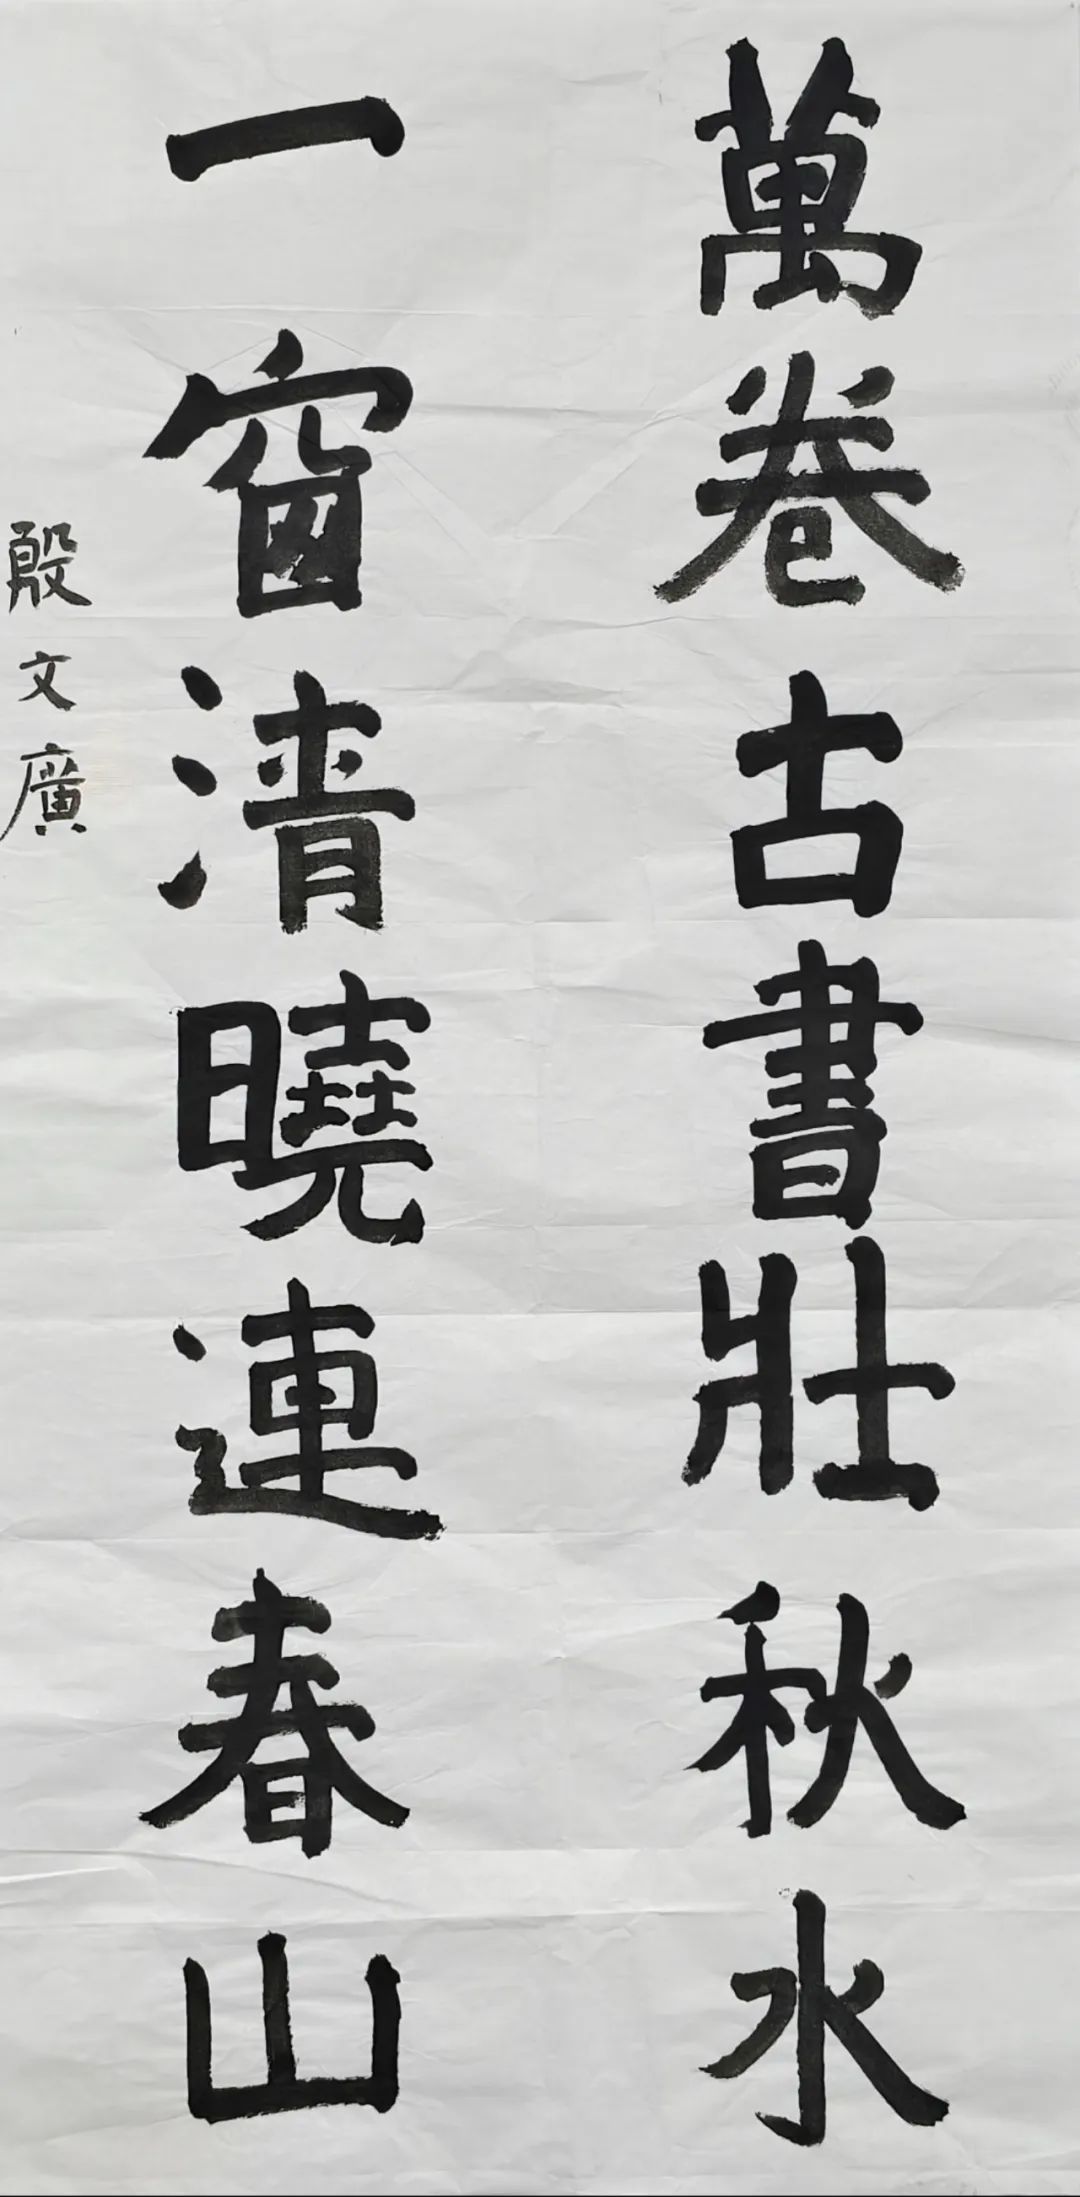 萬卷古書壯秋水
一窗清曉連春山
殷文廣